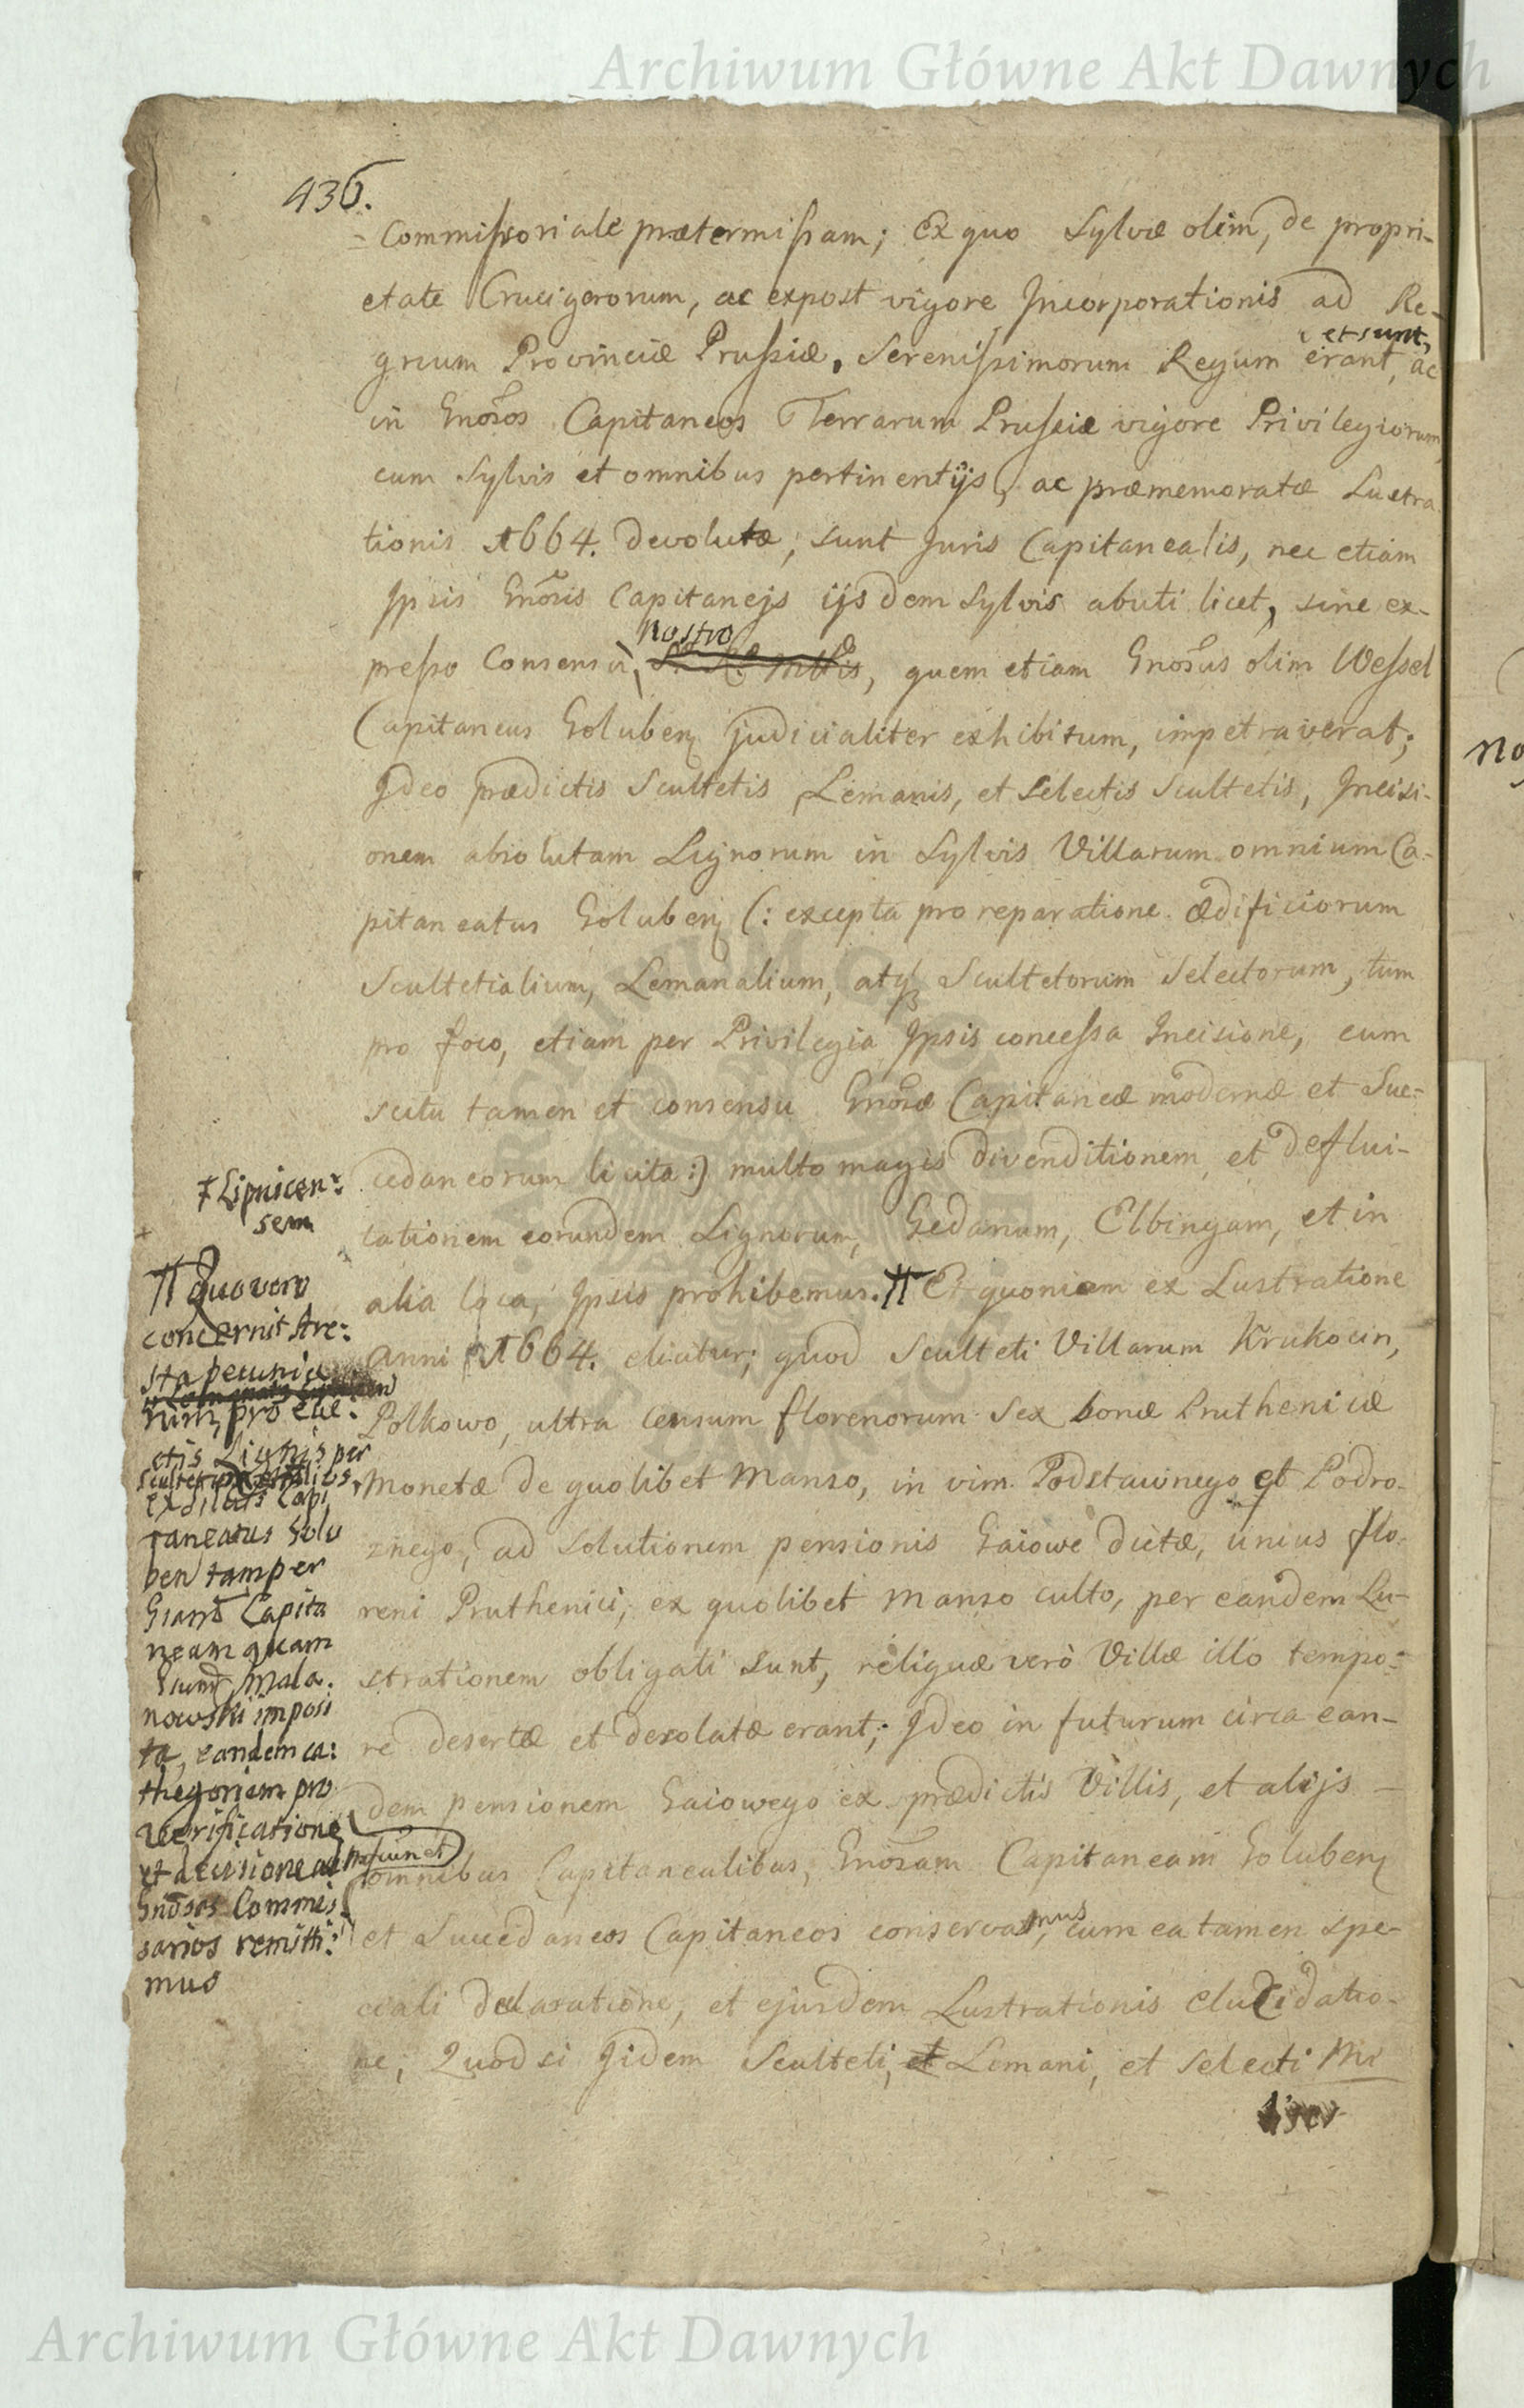 Archiwum Główne Akt Dawnych
436.
= Commissoriale prætermissam; Ex quo Sylvæ olim, de propri-
etate Crucigerorum, ac expost vigore Incorporationis ad Re-
gnum Provinciæ Prussiæ, Serenissimorum Regum erant, ac
et sunt,
in Gnosos Capitaneos Terrarum Prussiæ vigore Privilegiorum
cum Sylvis et omnibus pertinentijs, ac præmemoratæ Lustra
tionis 1664. devolutæ; sunt Juris Capitanealis, nec etiam
Ipsis Gnosis Capitanejs ijsdem Sylvis abuti licet, sine ex-
nostro
presso Consensu, quem etiam Gnosus olim Wessel
Capitaneus Goluben judicialiter exhibitum, impetraverat;
Ideo prædictis Scultetis Lemanis, et Selectis Scultetis, Incisi-
onem absolutam Lignorum in Sylvis Villarum omnium Ca-
pitaneatus Goluben (: excepta pro reparatione ædificiorum
Scultetialium, Lemanalium, atq Scultetorum Selectorum, tum
pro foco, etiam per Privilegia Ipsis concessa Incisione, cum
scitu tamen et consensu Gnosæ Capitaneæ modernæ et Suc-
cedaneorum licita:) multo magis divenditionem et deflui-
tationem eorundem Lignorum, Gedanum, Elbingam, et in
alia loca, Ipsis prohibemus. Et quoniam ex Lustratione
Anni 1664. elicitur; quod Sculteti Villarum Krukocin,
Polkowo, ultra censum florenorum Sex bonæ Pruthenicæ
Monetæ de quolibet Manso, in vim Podstawnego et Podro-
znego, ad solutionem pensionis Gaiowe dictæ, unius flo-
reni Pruthenici, ex quolibet manso culto, per eandem Lu-
strationem obligati sunt, reliquæ verò Villæ illo tempo-
re desertæ et desolatæ erant; Ideo in futurum circa ean-
dem pensionem Gaiowego ex prædictis Villis, et alijs
omnibus Capitanealibus, Gnosam Capitaneam Goluben
et Succedaneos Capitaneos conservamus, cum ea tamen spe-
ciali declaratione, et ejusdem Lustrationis elucidatio-
ne, Quod si Iidem Sculteti, et Lemani, et selecti
Lipnicen-
sem
Quo vero
concernit Are-
sta pecunia
pro eve-
ctis Lignis per
Capi
taneatus Golu
ben tam per
Capita
neam quam
Mala-
nowski imposi
ta, eandem ca-
thegoriem pro
verificatione
et decisione ad
Gnosos Commis
sarios remitti-
mus
no
Archiwum Główne Akt Dawnych